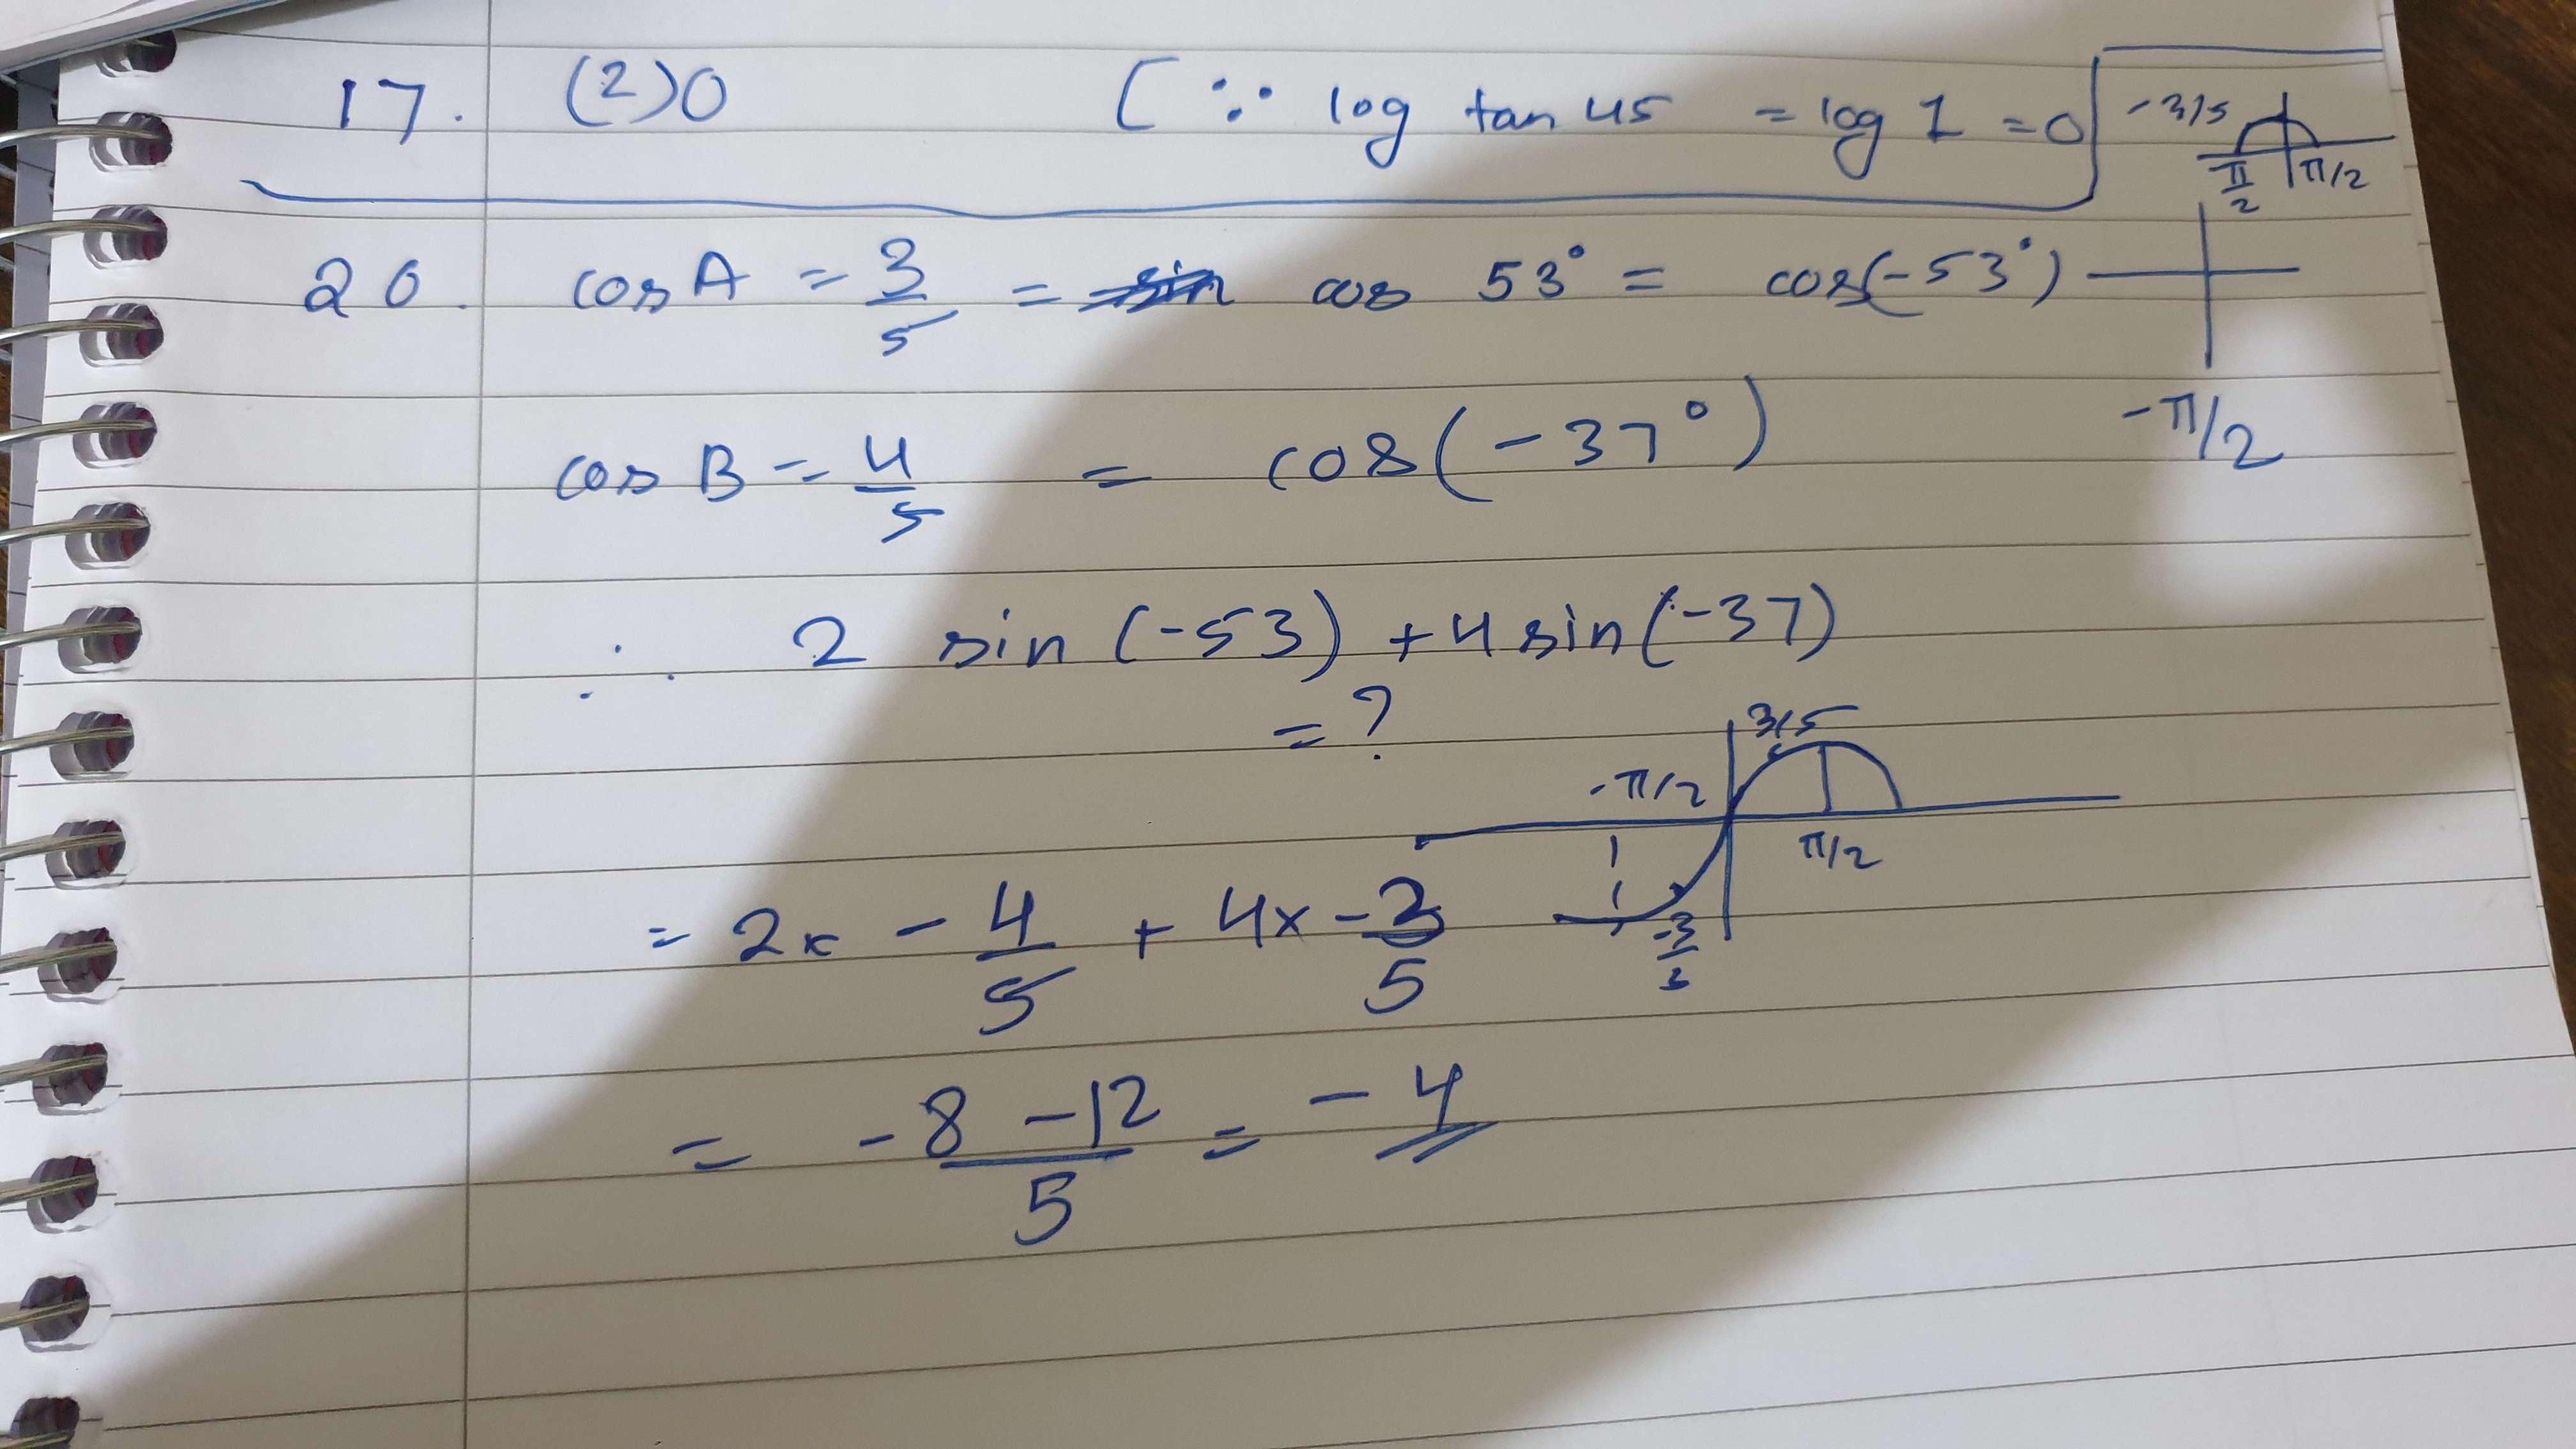 17. (2) 0 [∵ log tan 45 = log 1 = 0
-3/5
π/2 π/2
20. cos A = 3/5 = cos 53° = cos(-53°)
-π/2
cos B = 4/5 = cos(-37°)
∴ 2 sin (-53) + 4 sin (-37)
= ?
3/5
-π/2
π/2
= 2x -4/5 + 4x -3/5
= -8 -12/5 = -4